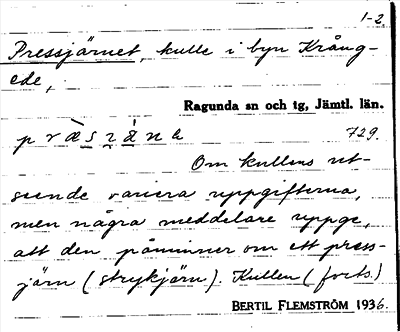 1-2.
Pressjärnet, kulle i byn Krång-
ede,
Ragunda sn och tg, Jämtl. län.
729.
Om kullens ut-
seende variera uppgifterna,
men några meddelare uppge,
att den påminner om ett press-
järn (strykjärn). Kullen (forts.)
BERTIL FLEMSTRÖM 1936.